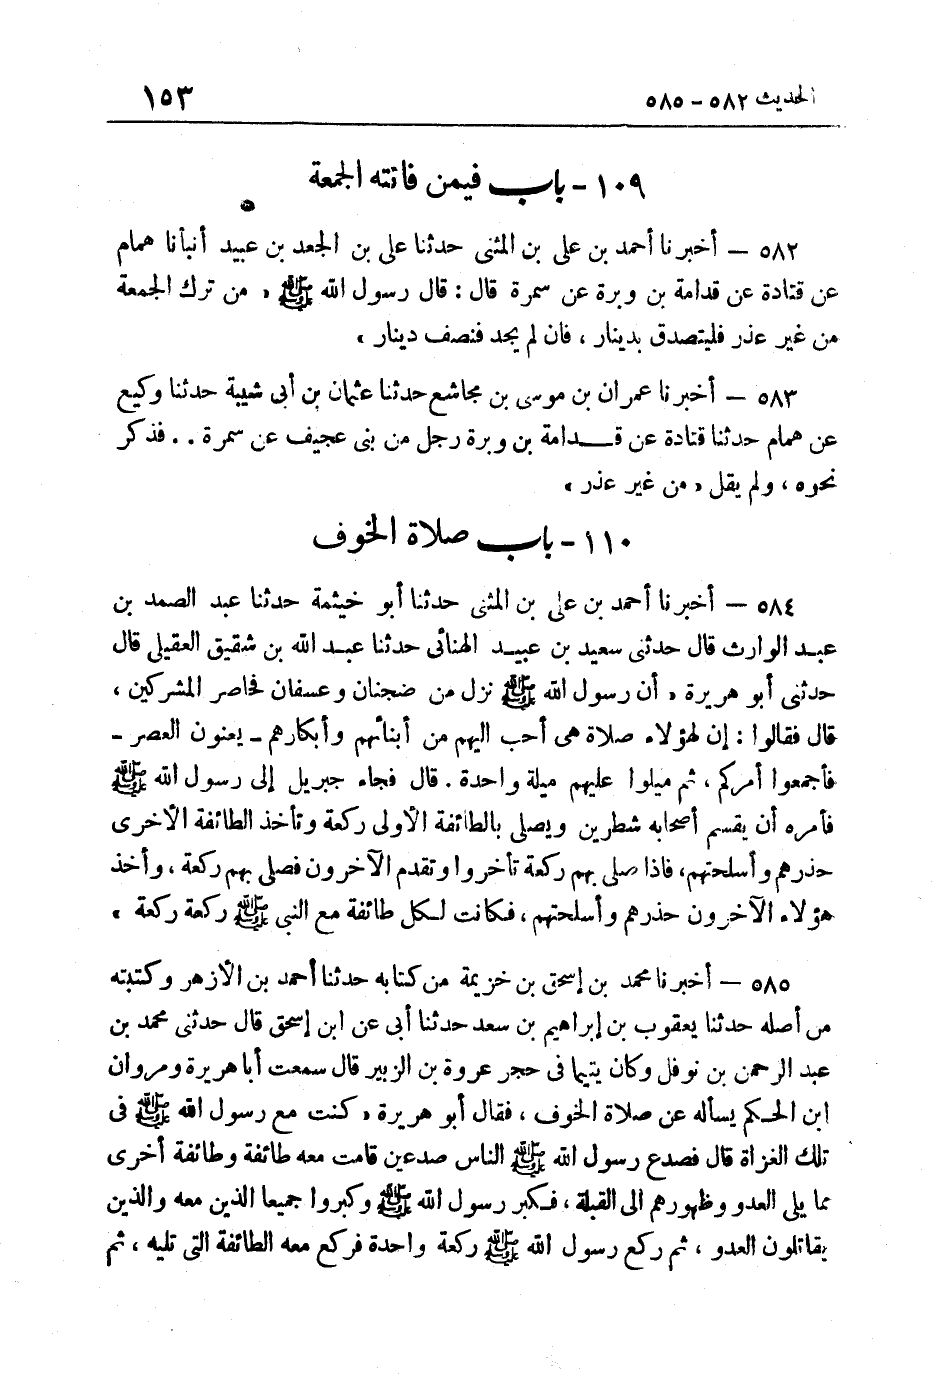 الحديث ٥٨٢ – ٥٨٥
١٥٣
١٠٩ - باب فيمن فاتته الجمعة
٥٨٢ – أخبرنا أحمد بن على بن المثنى حدثنا على بن الجعد بن عبيد أنبأنا همام
عن قتادة عن قدامة بن وبرة عن سمرة قال : قال رسول الله ﷺ « من ترك الجمعة
من غير عذر فليتصدق بدينار ، فان لم يجد فنصف دينار »
٥٨٣ – أخبرنا عمران بن موسى بن مجاشع حدثنا عثمان بن أبى شيبة حدثنا وكيع
عن همام حدثنا قتادة عن قدامة بن وبرة رجل من بنى عجيف عن سمرة . . فذكر
نحوه ، ولم يقل « من غير عذر »
١١٠ - باب صلاة الخوف
٥٨٤ – أخبرنا أحمد بن على بن المثنى حدثنا أبو خيثمة حدثنا عبد الصمد بن
عبد الوارث قال حدثنى سعيد بن عبيد الهنائى حدثنا عبد الله بن شقيق العقيلى قال
حدثنى أبو هريرة « أن رسول الله ﷺ نزل من ضجنان وعسفان فحاصر المشركين ،
قال فقالوا : إن لهؤلاء صلاة هى أحب اليهم من أبنائهم وأبكارهم – يعنون العصر –
فأجمعوا أمركم ، ثم ميلوا عليهم ميلة واحدة . قال فجاء جبريل إلى رسول الله ﷺ
فأمره أن يقسم أصحابه شطرين ويصلى بالطائفة الأولى ركعة وتأخذ الطائفة الأخرى
حذرهم وأسلحتهم، فاذا صلى بهم ركعة تأخروا وتقدم الآخرون فصلى بهم ركعة ، وأخذ
هؤلاء الآخرون حذرهم وأسلحتهم ، فكانت لكل طائفة مع النبى ﷺ ركعة ركعة »
٥٨٥ – أخبرنا محمد بن إسحق بن خزيمة من كتابه حدثنا أحمد بن الأزهر وكتبته
من أصله حدثنا يعقوب بن إبراهيم بن سعد حدثنا أبى عن ابن إسحق قال حدثنى محمد بن
عبد الرحمن بن نوفل وكان يتيما فى حجر عروة بن الزبير قال سمعت أبا هريرة ومروان
ابن الحكم يسأله عن صلاة الخوف ، فقال أبو هريرة « كنت مع رسول الله ﷺ فى
تلك الغزاة قال فصدع رسول الله ﷺ الناس صدعين قامت معه طائفة وطائفة أخرى
مما يلى العدو وظهورهم الى القبلة ، فكبر رسول الله ﷺ وكبروا جميعا الذين معه والذين
يقاتلون العدو ، ثم ركع رسول الله ﷺ ركعة واحدة فركع معه الطائفة التى تليه ، ثم